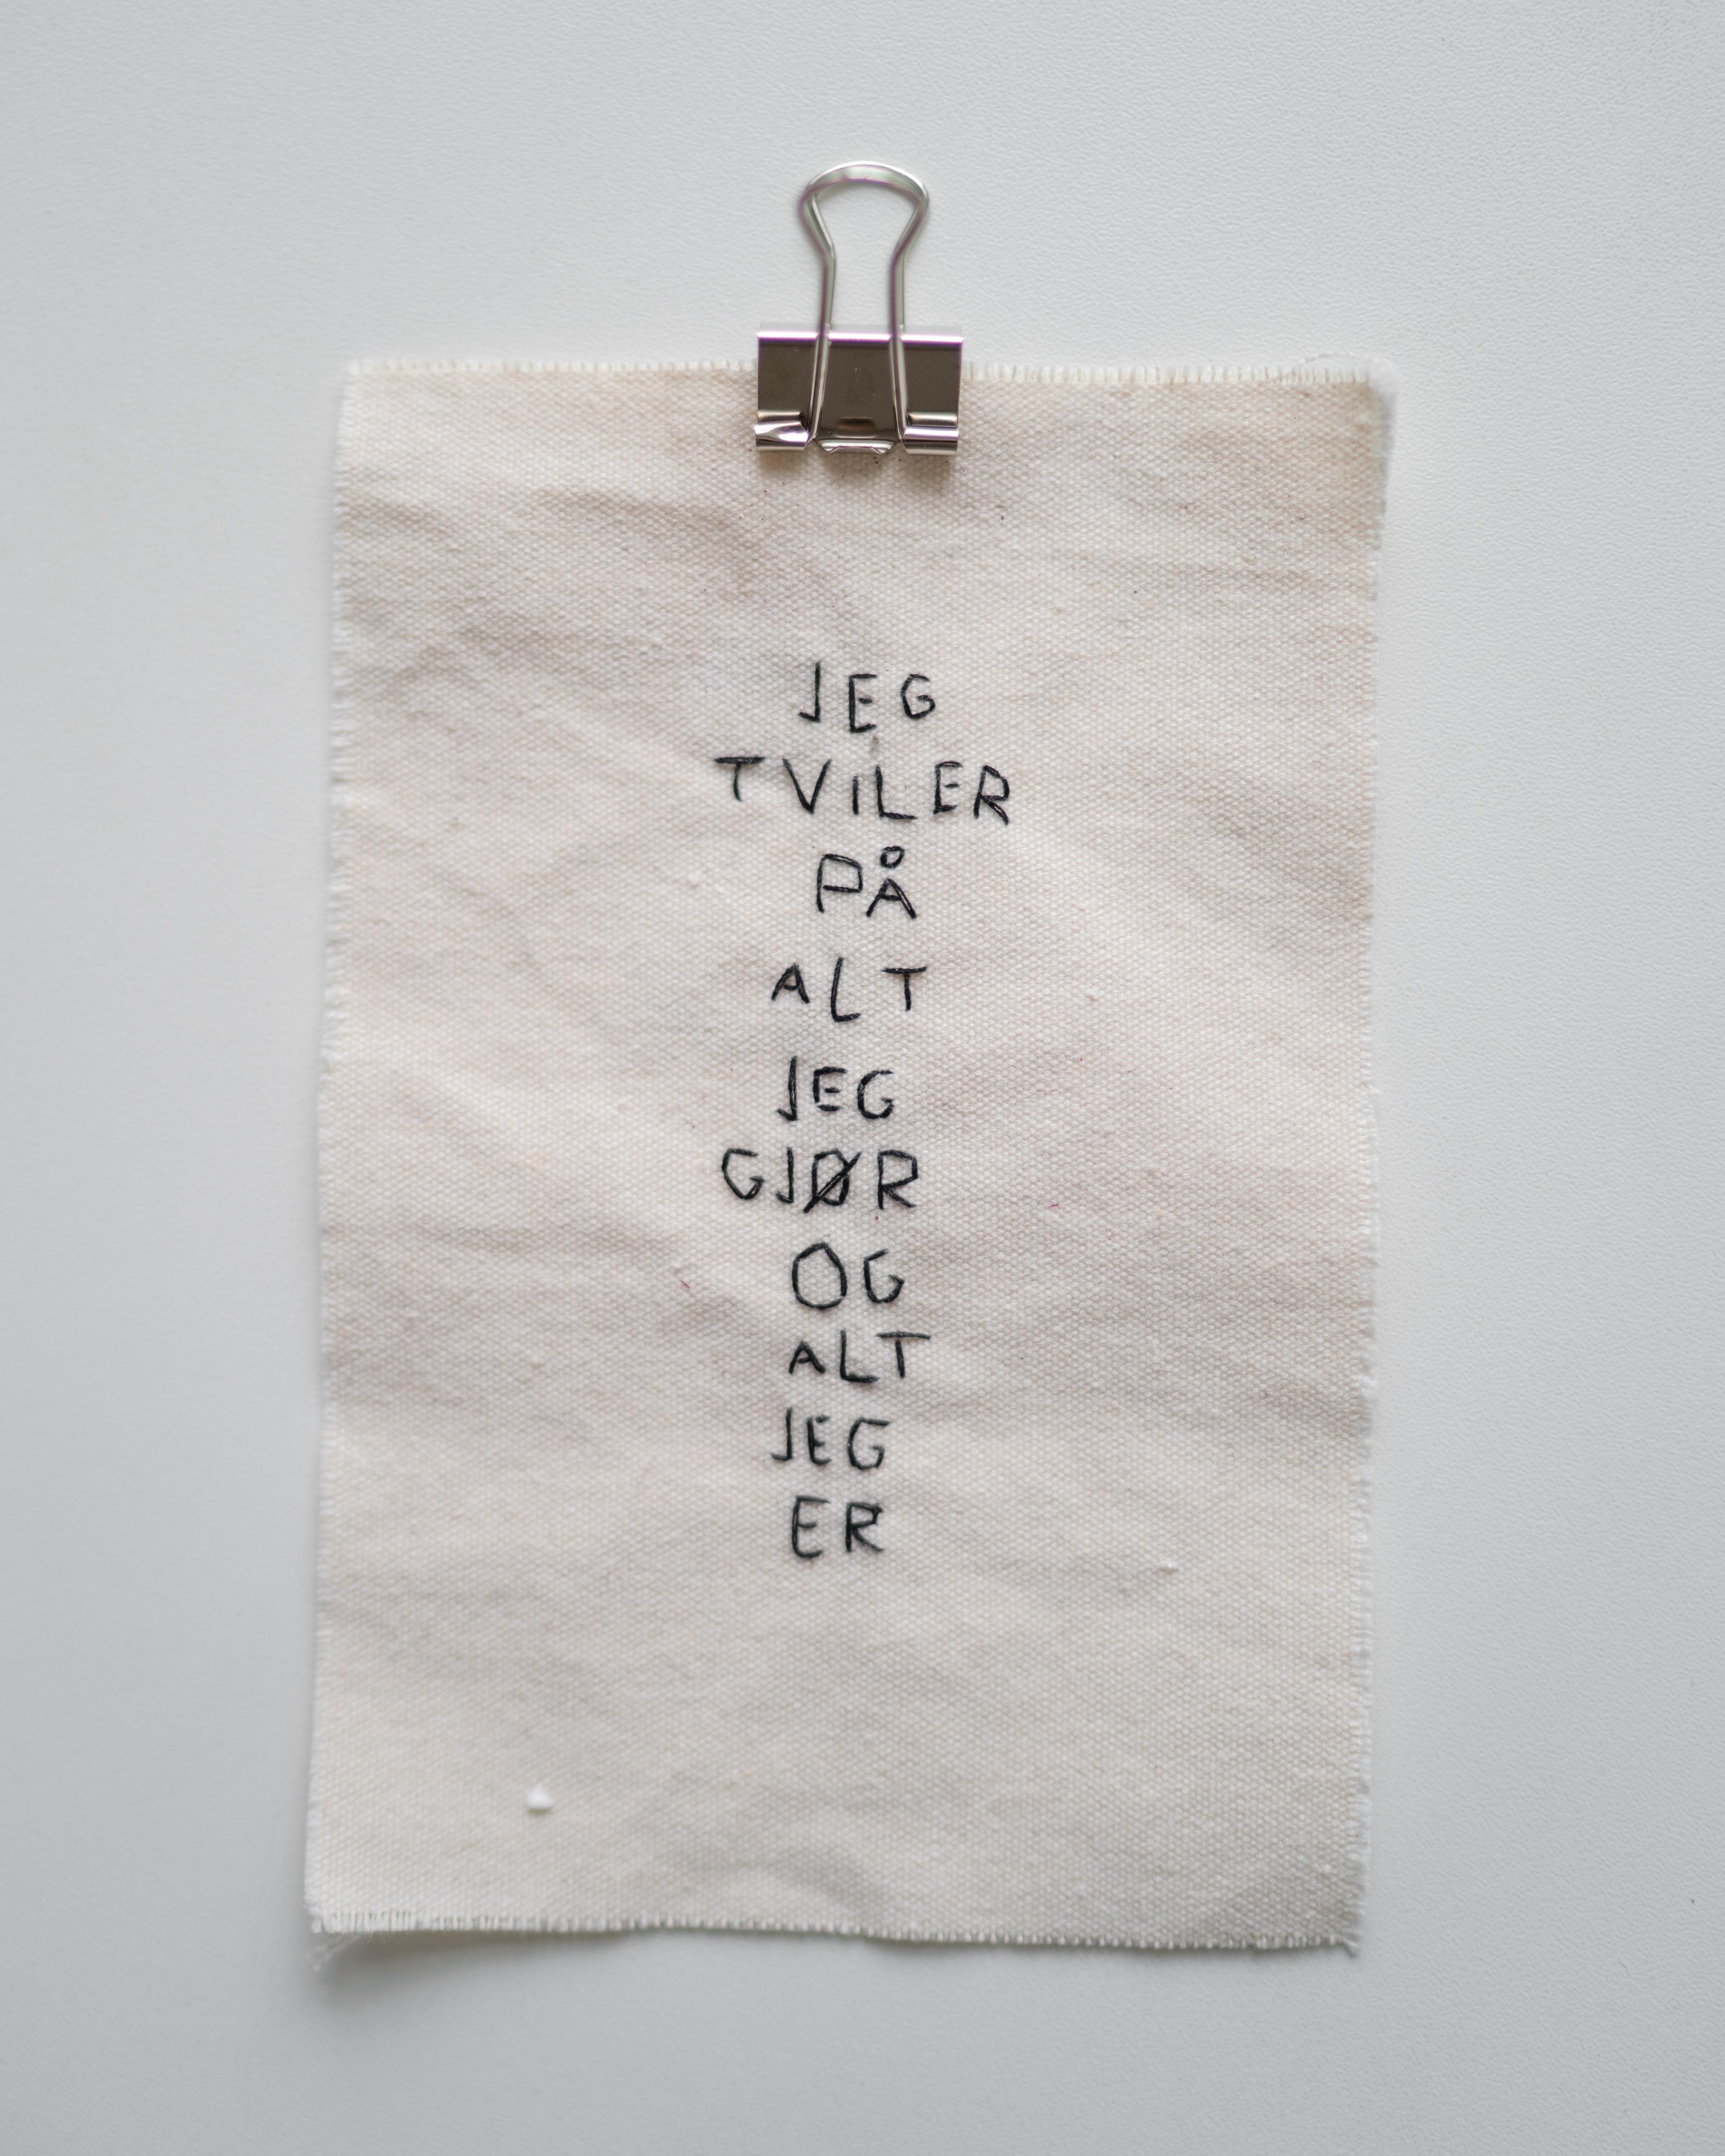 JEG
TVILER
PÅ
ALT
JEG
GJØR
OG
ALT
JEG
ER